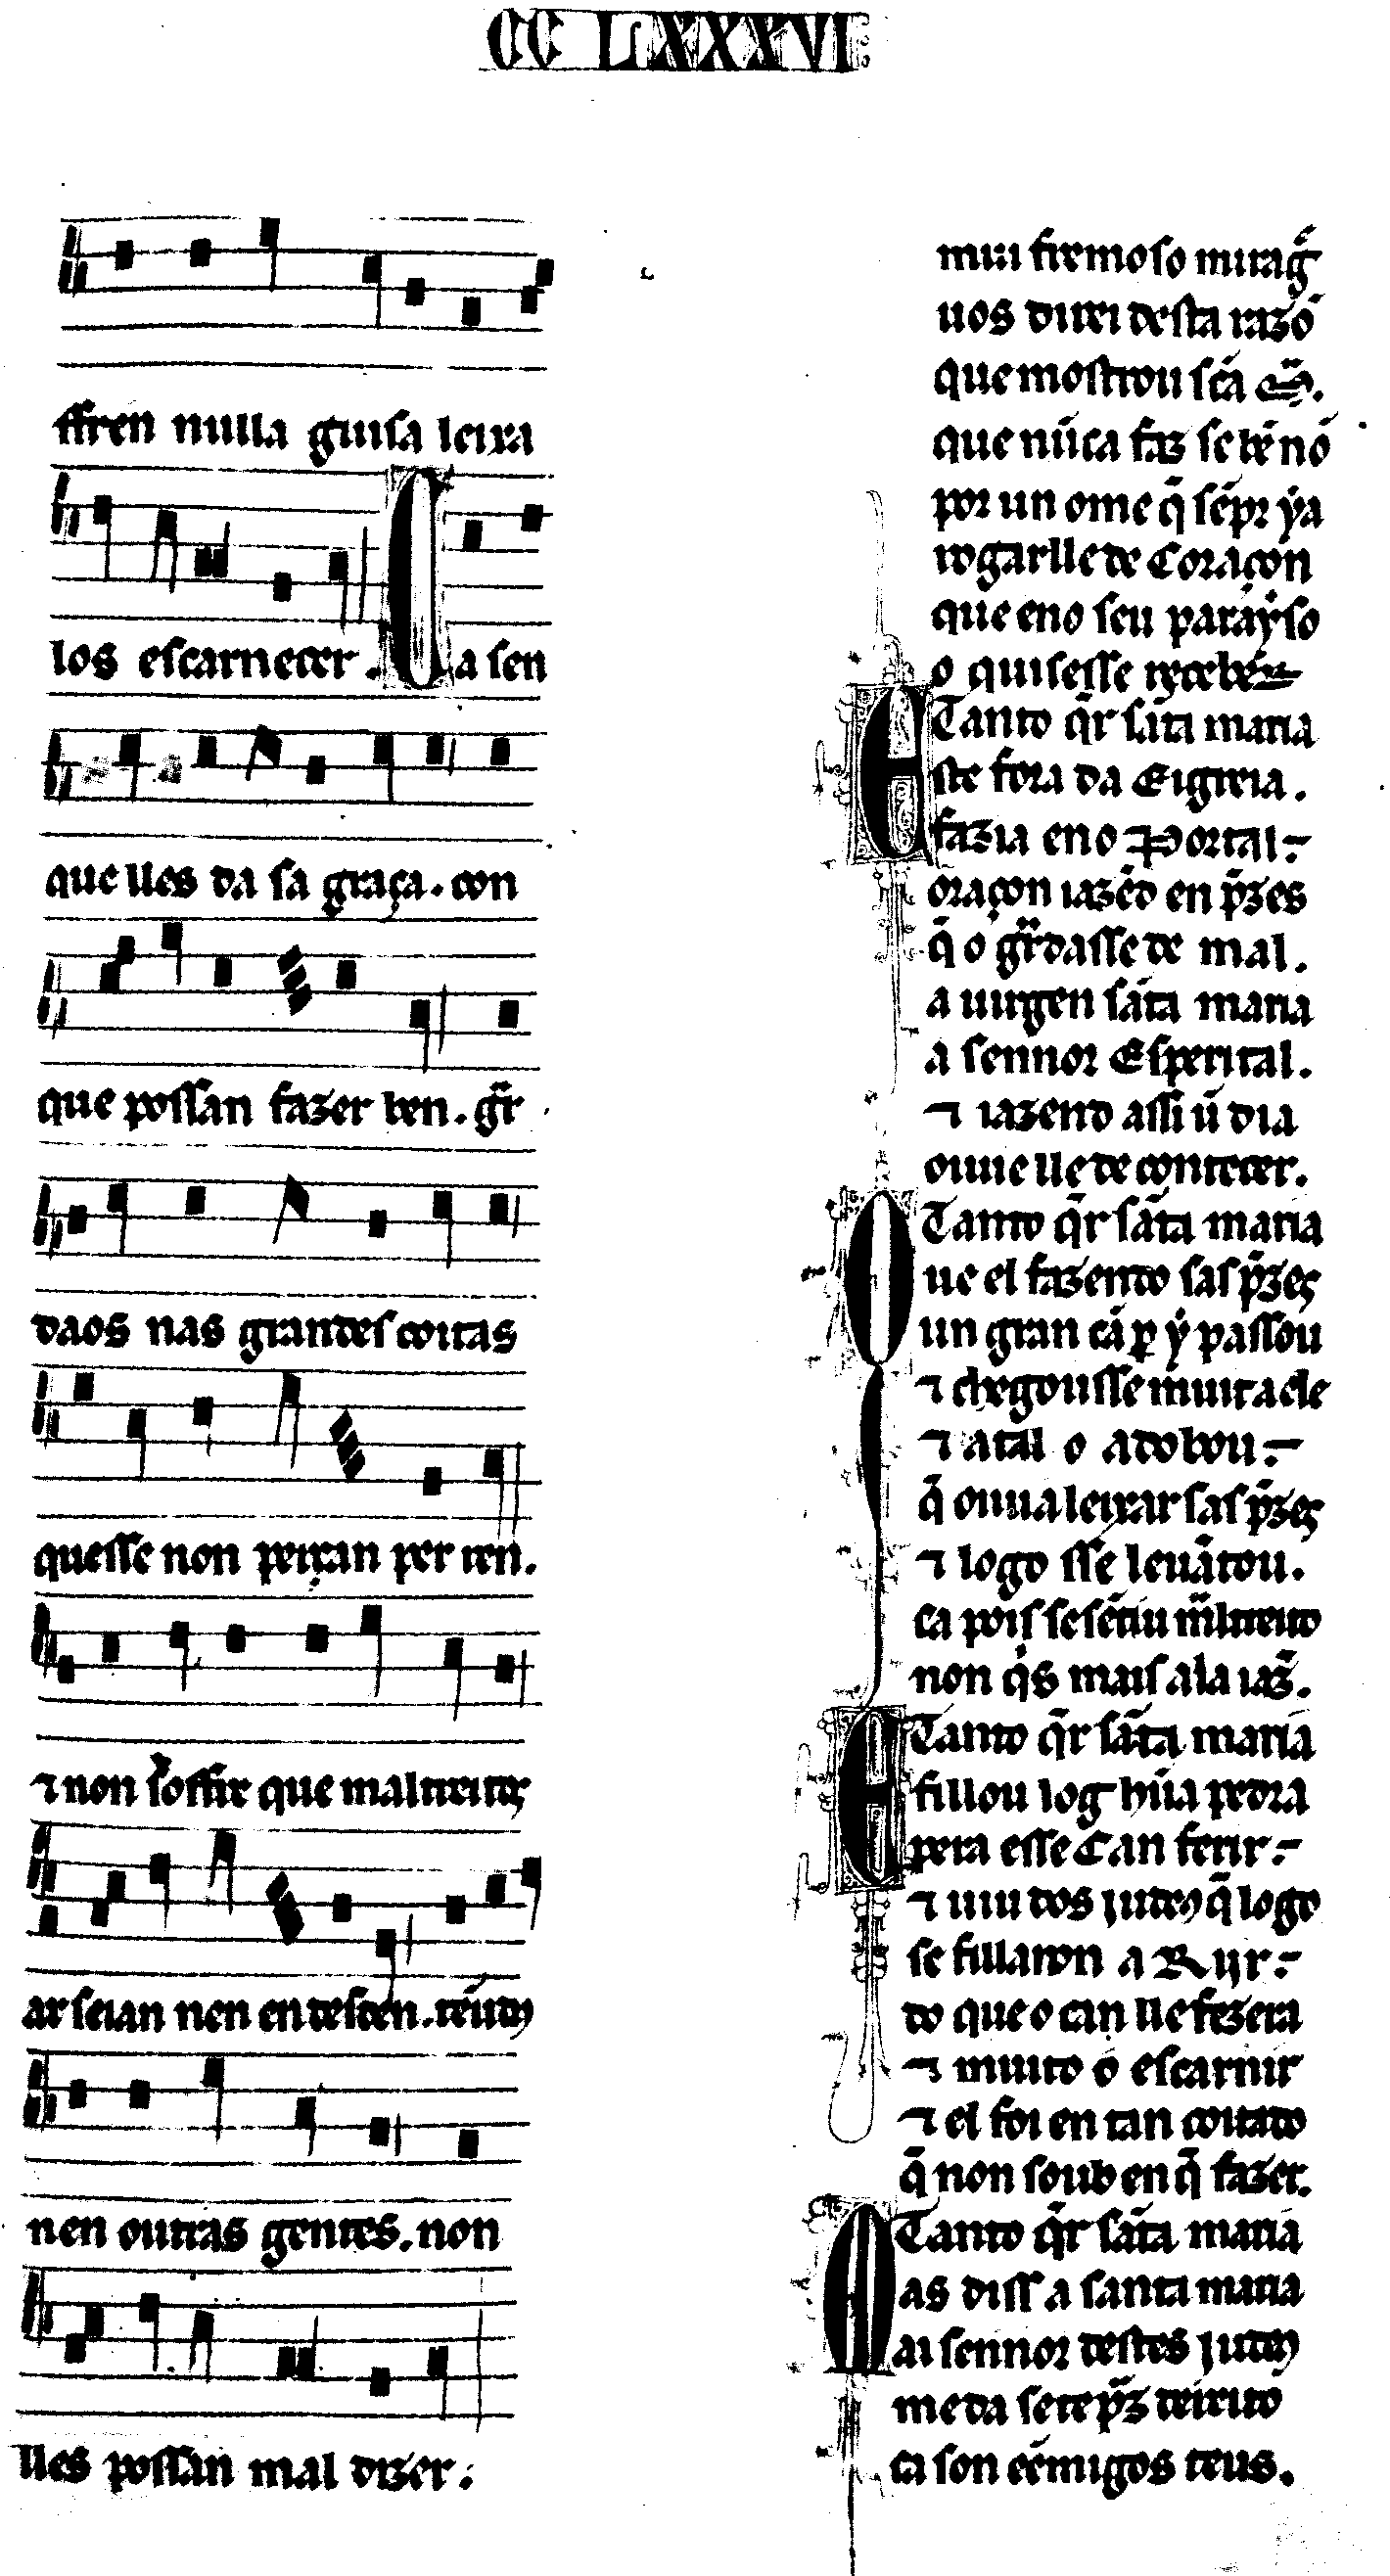 CC LXXXVI
ffren nulla guisa leixa
los escarnecer. Ca sen
que lles da sa graça. con
que possan fazer ben. gr̃
daos nas grandes coitas
quesse non perçan per ren.
⁊ non soffrir que maltreitos
ar seian nen en desden. tẽudos
nen outras gentes. non
lles possan mal dizer.
mui fremoso miragr̃
uos direi desta razõ
que mostrou sc̃a m̃.
que nũca faz se bẽ nõ
por un ome q̃ sẽpr ya
rogarlle de Coraçon
que eno seu parayso
o quisesse receber
Tanto q̃r sãta maria
Este fora da Eigreia.
fazia eno Portal
oraçon iazẽd en p̃zes
q̃ o gr̃dasse de mal.
a uirgen sãta maria
a sennor Esperital.
⁊ iazend assi ũ dia
ouue lle de contecer.
Tanto q̃r sãta maria
Que el fazendo sas p̃zes
un gran cã p y passou
⁊ chegousse muit a ele
⁊ atal o adobou
q̃ ouu a leixar sas p̃zes
⁊ logo sse leuãtou.
ca pois se sẽtiu m̃ltreito
non q̃s mais ala iaz̃.
Tanto q̃r sãta maria
E fillou log hũa pedra
pera esse Can ferir
⁊ uiu dos judeos q̃ logo
se fillaron a Rijr
do que o can lle fezera
⁊ muito o escarnir
⁊ el foi en tan coitado
q̃ non soub en q̃ fazer.
Tanto q̃r sãta maria
Mas diss a santa maria
ai sennor destes judeos
me da se te p̃z dereito
ca son eẽmigos teus.